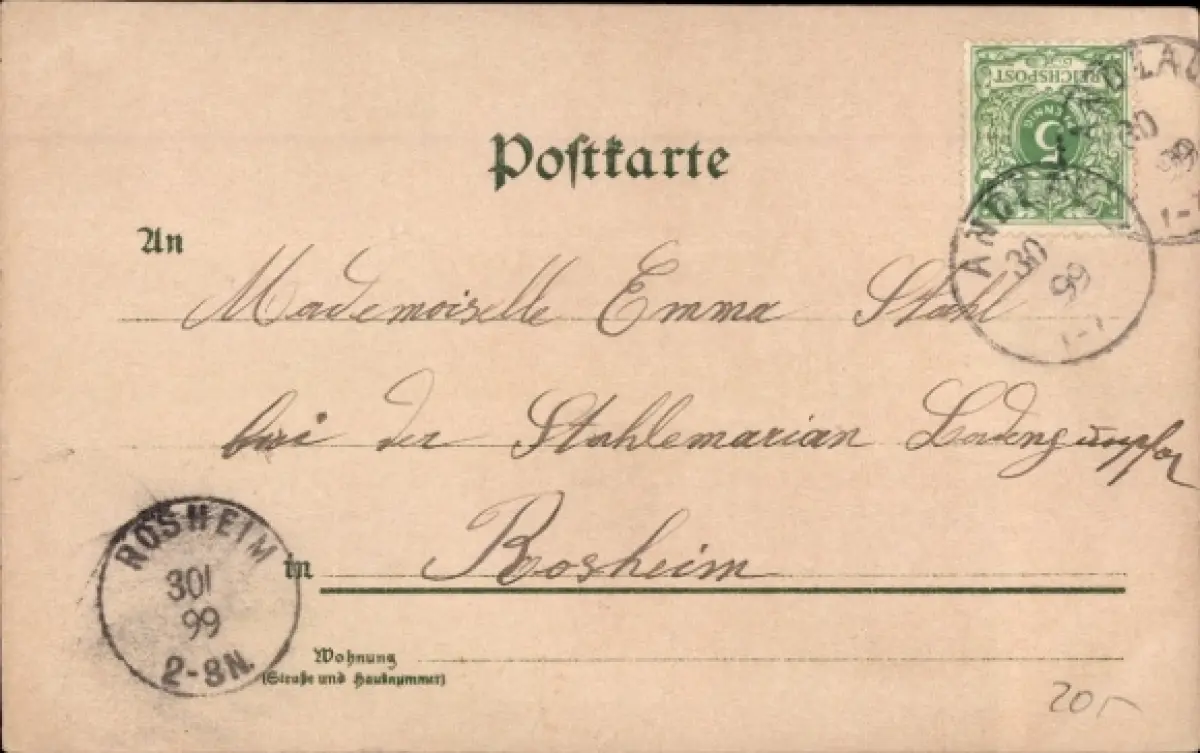 REICHSPOST
5
PFENNIG
ANDLAU
30
99
1-7
ANDLAU
30
99
1-7
Postkarte
An
Mademoiselle Emma Stahl
bei der Stahlemarian
Rosheim
in
ROSHEIM
30 1
99
2-8N.
Wohnung
(Straße und Hausnummer)
20,-